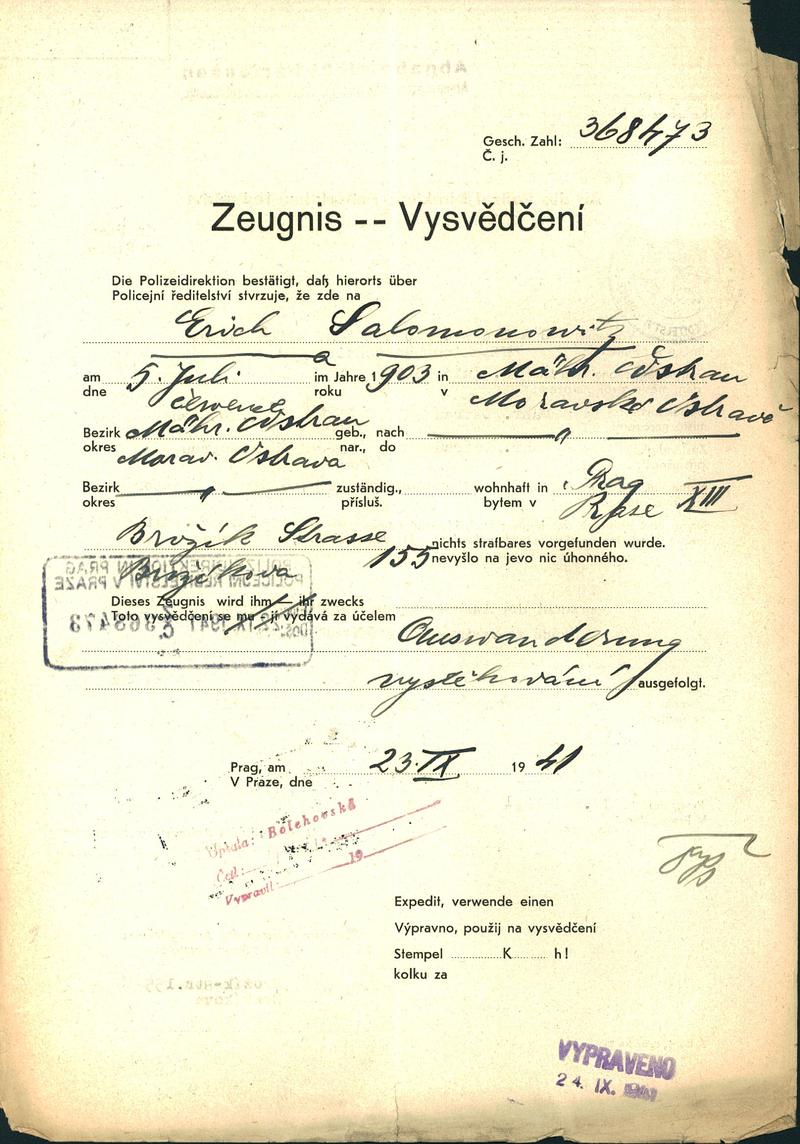 Gesch. Zahl: 368473
Č. j.
Zeugnis -- Vysvědčení
Die Polizeidirektion bestätigt, daß hierorts über
Policejní ředitelství stvrzuje, že zde na
Erich Salomonowitz
am 5. Juli im Jahre 1903 in Mähr. Ostrau
dne července roku v Moravské Ostravě
Bezirk Mähr. Ostrau geb., nach "
okres Morav. Ostrava nar., do
Bezirk " zuständig., wohnhaft in Prag XIII
okres přísluš. bytem v Praze
Brožík Strasse 155 nichts strafbares vorgefunden wurde.
Brožíkova nevyšlo na jevo nic úhonného.
Dieses Zeugnis wird ihm — ihr zwecks
Toto vysvědčení se mu - jí vydává za účelem
Auswanderung
vystěhování ausgefolgt.
Prag, am 23. IX 1941
V Praze, dne
Upsala: Bölehovská
Četl:
Vypravil: 19
Expedit, verwende einen
Výpravno, použij na vysvědčení
Stempel K h!
kolku za
VYPRAVENO
24. IX. 1941